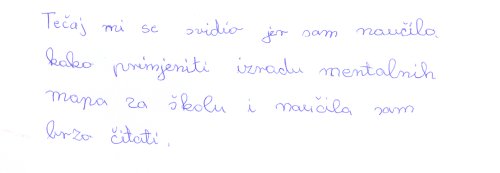 Tečaj mi se svidio jer sam naučila
kako primjeniti izradu mentalnih
mapa za školu i naučila sam
brzo čitati.